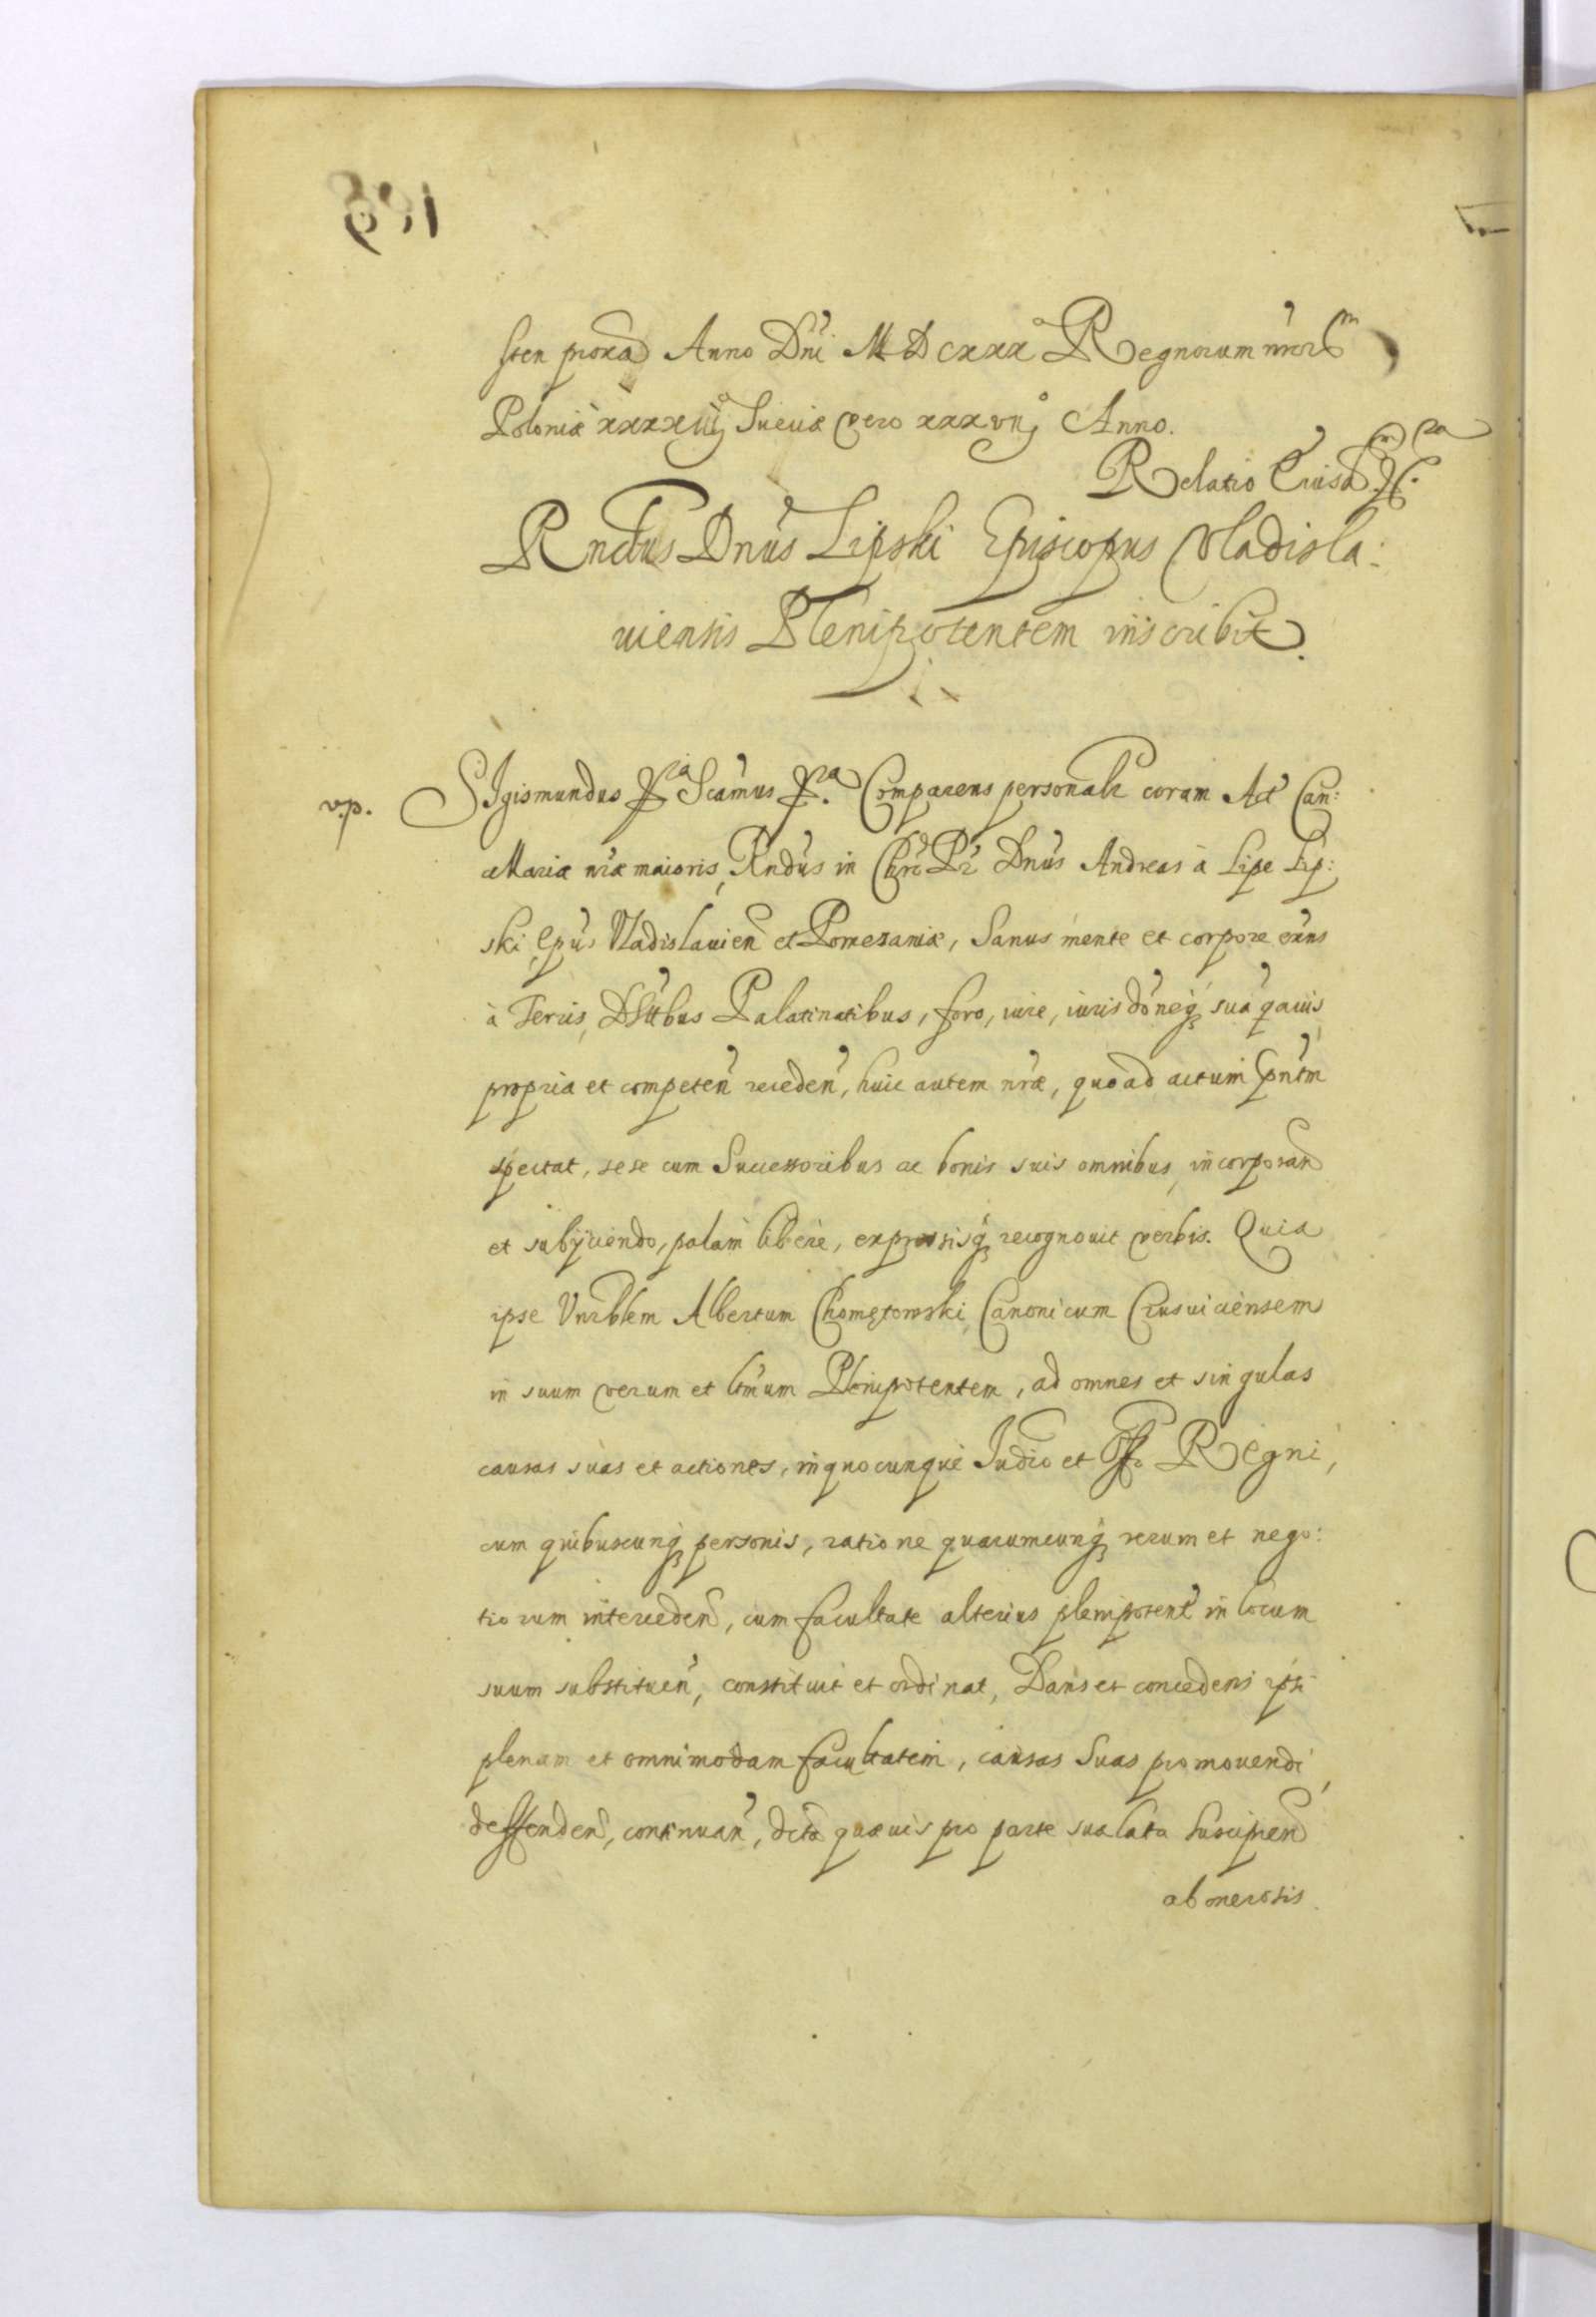 sten proxa Anno Dni MDCXXX Regnorum nrorum
Poloniæ xxxxiij Sueciæ vero xxxvij Anno.
Relatio Eiusd
Rndus Dnus Lipski Episcopus Vladisla:
uiensis Plenipotentem inscribit.
v.p. SIgismundus Scamus Comparens personalr coram Act Can:
cellariæ nræ maioris, Rndus in Chro Pr Dnus Andreas à Lipe Lip:
ski, Epus Vladislauien et Pomeraniæ, Sanus mente et corpore exns
à Terris, Dttbus Palatinatibus, foro, iure, iurisdoneq sua qauis,
propria et competen receden, huic autem nræ, quo ad actum pntm
spectat, sese cum Successoribus ac bonis suis omnibus, incorporan
et subijciendo, palam libere, expressisq recognouit verbis. Quia
ipse Vnrblem Albertum Chomętowski, Canonicum Crusuiciensem
in suum verum et ltmum Plenipotentem, ad omnes et singulas
causas suas et actiones, in quocunque Judio et Offo Regni,
cum quibuscunq personis, ratione quarumcunq rerum et nego:
tiorum interceden, cum facultate alterius plenipotent in locum
suum substituen, constituit et ordinat, Dans et concedens ipsi
plenam et omnimodam facultatem, causas suas promouendi,
deffenden, continuan, dcta quæuis pro parte sua lata suscipien
ab onerosis